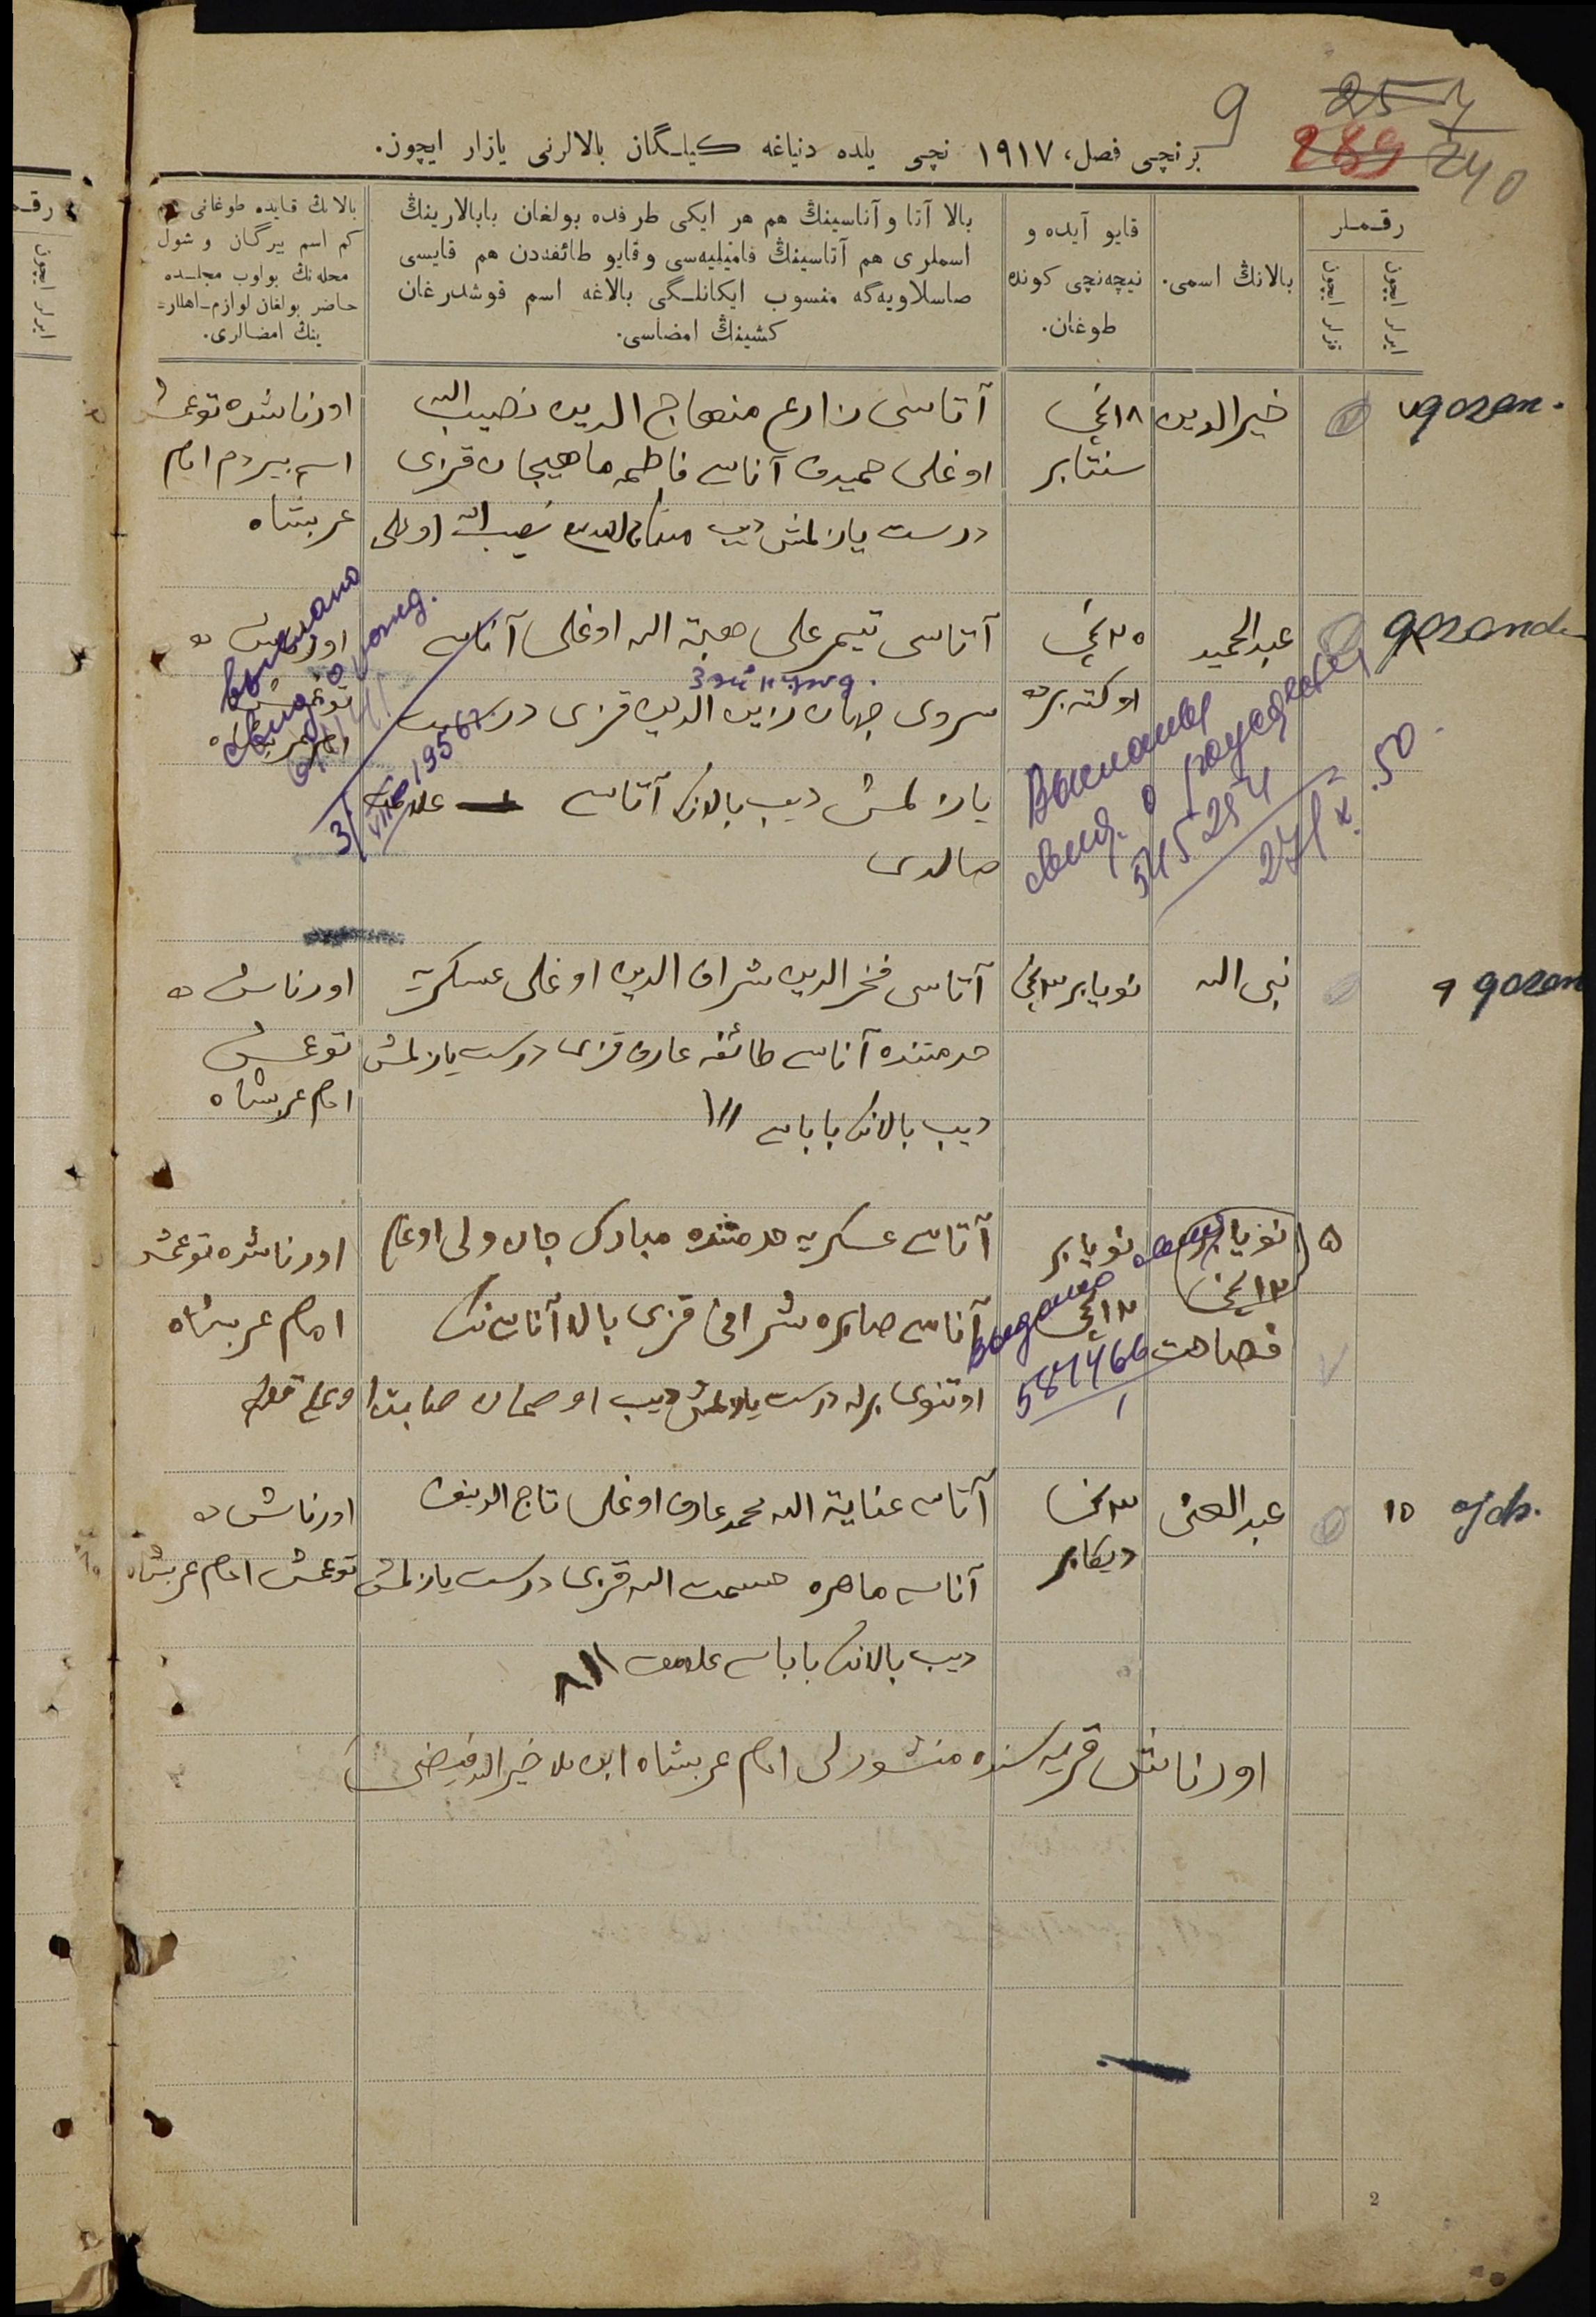 9
257
289 240
برنچی فصل، ۱۹۱۷ نچی یلده دنیاغه کیلـگان بالالرنی یازار ایچون.
رقـملر
ایرلر ایچون
قزلر ایچون
بالانڭ اسمی.
قایو آیده و نیچه‌نچی کونده طوغان.
بالا آتا و آناسینڭ هم هر ایکی طرفده بولغان بابالارینڭ
اسملری هم آتاسینڭ فامیلیه‌سی و قایو طائفه‌دن هم قایسی
صاسلاویه‌گه منسوب ایکانلـگی بالاغه اسم قوشدرغان
کشینڭ امضاسی.
بالانڭ قایده طوغانی هم
کم اسم بیرگان و شول
محله‌نڭ بولوب مجلـده
حاضر بولغان لوازم-اهللار-
ینڭ امضالری.
خیرالدین
۱۸ نچی
سنتابر
آتاسی زارع منهاج الدین نصیب الله
اوغلی حمیدف آناسی فاطمه ماهیجان قزی
درست یازلمش دیب منهاج الدین نصیب الله اوغلی
اورناشده توغمش
اسم بیردم امام
عربشاه
عبدالحمید
۲۵ نچی
اوکتەبرده
آتاسی تیمرعلی محبة الله اوغلی آناسی
سروی جهان زین الدین قزی درست
یازلمش دیب بالانڭ آتاسی علامت
صالدی
3/VIII 1956
выписано
свид. о рожд.
Выписаны
свид. о рождении
545294
27/X.50.
نبی الله
نویابر ۳ نچی
آتاسی فخرالدین شراف الدین اوغلی عسکریه
خدمتنده آناسی طائفه عارف قزی درست یازلمش
دیب بالانڭ باباسی ۱۱۱
اورناش ده
توغمش
امام عربشاه
۵
نویابر
۱۳ نچی
فصاحت
نویابر
۱۳ نچی
آتاسی عسکریه خدمتنده مبارک جان ولی اوغلی
آناسی صابره شرافی قزی بالا آناسی نڭ
اوتنوی برله درست یازلمش دیب
اورناشده توغمش
امام عربشاه
выдано свид
587466
۱۵
عبدالغنی
۳ نچی
دیکابر
آتاسی عنایة الله محمد عارف اوغلی تاج الدینف
آناسی ماهره حسمت الله قزی درست یازلمش
دیب بالانڭ باباسی علامت ۸۱۱
اورناش ده
توغمش امام عربشاه
اورناش قریه سنده منشورلی امام عربشاه ابن ملا خیرالله فیضی
2